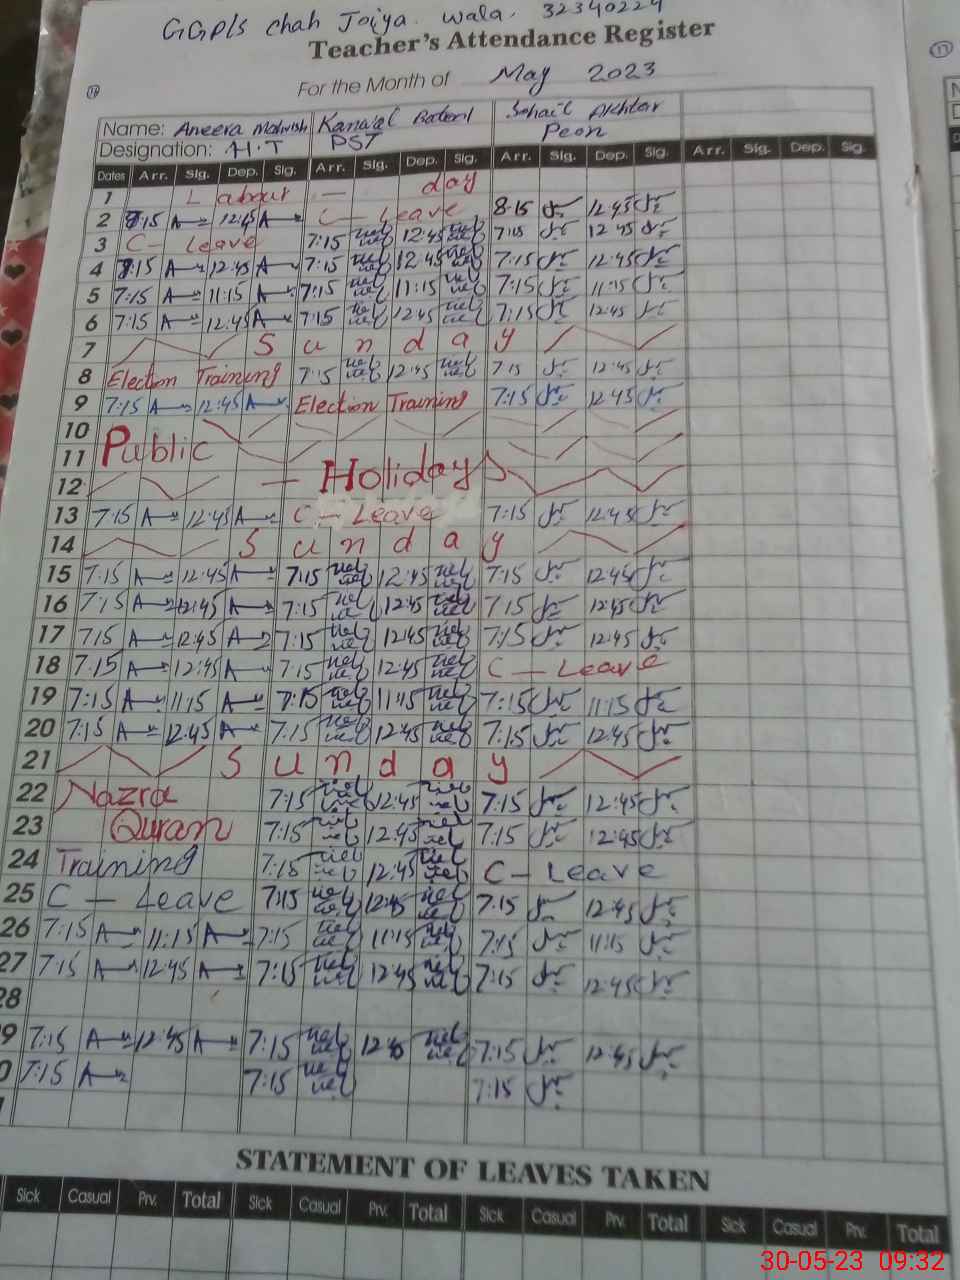 GGPLS chah Joiya wala. 32340224
Teacher's Attendance Register
For the Month of May 2023
Name: Aneera Mahwish Kanwal Batool Sohail Akhtar
Designation: H.T PST Peon
Dates Arr. Sig. Dep. Sig. Arr. Sig. Dep. Sig. Arr. Sig. Dep. Sig. Arr. Sig. Dep. Sig.
1 Labour — day
2 8:15 12:45 C — Leave 8-15 12:45
3 C — Leave 7:15 12:45 7:15 12 45
4 7:15 12:45 7:15 12:45 7:15 12:45
5 7:15 11:15 7:15 11:15 7:15 11:15
6 7:15 12:45 7:15 12:45 7:15 12:45
7 Sunday
8 Election Training 7:15 12:45 7:15 12:45
9 7:15 12:45 Election Training 7:15 12:45
10
11 Public
12 — Holidays
13 7:15 12:45 C — Leave 7:15 12:45
14 Sunday
15 7:15 12:45 7:15 12:45 7:15 12:45
16 7:15 12:45 7:15 12:45 7:15 12:45
17 7:15 12:45 7:15 12:45 7:15 12:45
18 7:15 12:45 7:15 12:45 C — Leave
19 7:15 11:15 7:15 11:15 7:15 11:15
20 7:15 12:45 7:15 12:45 7:15 12:45
21 Sunday
22 Nazra 7:15 12:45 7:15 12:45
23 Quran 7:15 12:45 7:15 12:45
24 Training 7:15 12:45 C — Leave
25 C — Leave 7:15 12:45 7:15 12:45
26 7:15 11:15 7:15 11:15 7:15 11:15
27 7:15 12:45 7:15 12:45 7:15 12:45
28
9 7:15 12:45 7:15 12:45 7:15 12:45
0 7:15 7:15 7:15
STATEMENT OF LEAVES TAKEN
Sick Casual Prv. Total Sick Casual Prv. Total Sick Casual Prv. Total Sick Casual Prv. Total
30-05-23 09:32